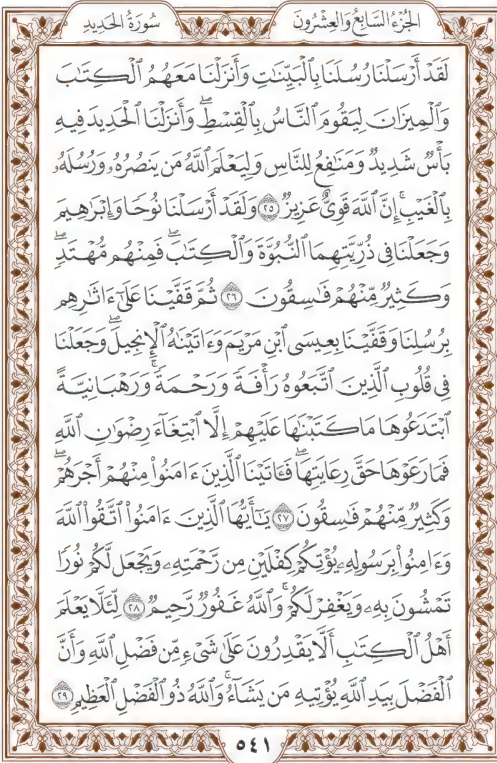 الجُزْءُ السَّابِعُ وَالعِشْرُونَ
سُورَةُ الحَدِيدِ
لَقَدْ أَرْسَلْنَا رُسُلَنَا بِٱلْبَيِّنَٰتِ وَأَنزَلْنَا مَعَهُمُ ٱلْكِتَٰبَ
وَٱلْمِيزَانَ لِيَقُومَ ٱلنَّاسُ بِٱلْقِسْطِۖ وَأَنزَلْنَا ٱلْحَدِيدَ فِيهِ
بَأْسٌ شَدِيدٌ وَمَنَٰفِعُ لِلنَّاسِ وَلِيَعْلَمَ ٱللَّهُ مَن يَنصُرُهُۥ وَرُسُلَهُۥ
بِٱلْغَيْبِۚ إِنَّ ٱللَّهَ قَوِىٌّ عَزِيزٌ ٢٥ وَلَقَدْ أَرْسَلْنَا نُوحًا وَإِبْرَٰهِيمَ
وَجَعَلْنَا فِى ذُرِّيَّتِهِمَا ٱلنُّبُوَّةَ وَٱلْكِتَٰبَۖ فَمِنْهُم مُّهْتَدٍۖ
وَكَثِيرٌ مِّنْهُمْ فَٰسِقُونَ ٢٦ ثُمَّ قَفَّيْنَا عَلَىٰٓ ءَاثَٰرِهِم
بِرُسُلِنَا وَقَفَّيْنَا بِعِيسَى ٱبْنِ مَرْيَمَ وَءَاتَيْنَٰهُ ٱلْإِنجِيلَۖ وَجَعَلْنَا
فِى قُلُوبِ ٱلَّذِينَ ٱتَّبَعُوهُ رَأْفَةً وَرَحْمَةًۚ وَرَهْبَانِيَّةً
ٱبْتَدَعُوهَا مَا كَتَبْنَٰهَا عَلَيْهِمْ إِلَّا ٱبْتِغَآءَ رِضْوَٰنِ ٱللَّهِ
فَمَا رَعَوْهَا حَقَّ رِعَايَتِهَاۖ فَـَٔاتَيْنَا ٱلَّذِينَ ءَامَنُوا۟ مِنْهُمْ أَجْرَهُمْۖ
وَكَثِيرٌ مِّنْهُمْ فَٰسِقُونَ ٢٧ يَٰٓأَيُّهَا ٱلَّذِينَ ءَامَنُوا۟ ٱتَّقُوا۟ ٱللَّهَ
وَءَامِنُوا۟ بِرَسُولِهِۦ يُؤْتِكُمْ كِفْلَيْنِ مِن رَّحْمَتِهِۦ وَيَجْعَل لَّكُمْ نُورًا
تَمْشُونَ بِهِۦ وَيَغْفِرْ لَكُمْۚ وَٱللَّهُ غَفُورٌ رَّحِيمٌ ٢٨ لِّئَلَّا يَعْلَمَ
أَهْلُ ٱلْكِتَٰبِ أَلَّا يَقْدِرُونَ عَلَىٰ شَىْءٍ مِّن فَضْلِ ٱللَّهِ وَأَنَّ
ٱلْفَضْلَ بِيَدِ ٱللَّهِ يُؤْتِيهِ مَن يَشَآءُۚ وَٱللَّهُ ذُو ٱلْفَضْلِ ٱلْعَظِيمِ ٢٩
٥٤١